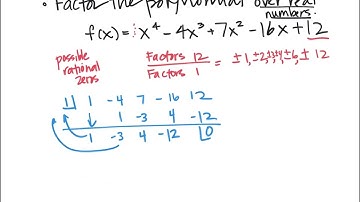 • Factor the polynomial over real numbers.
f(x) = x⁴ - 4x³ + 7x² - 16x + 12
possible rational zeros
Factors 12 / Factors 1 = ±1, ±2, ±3, ±4, ±6, ± 12
1| 1 -4 7 -16 12
1 -3 4 -12
1 -3 4 -12 |0